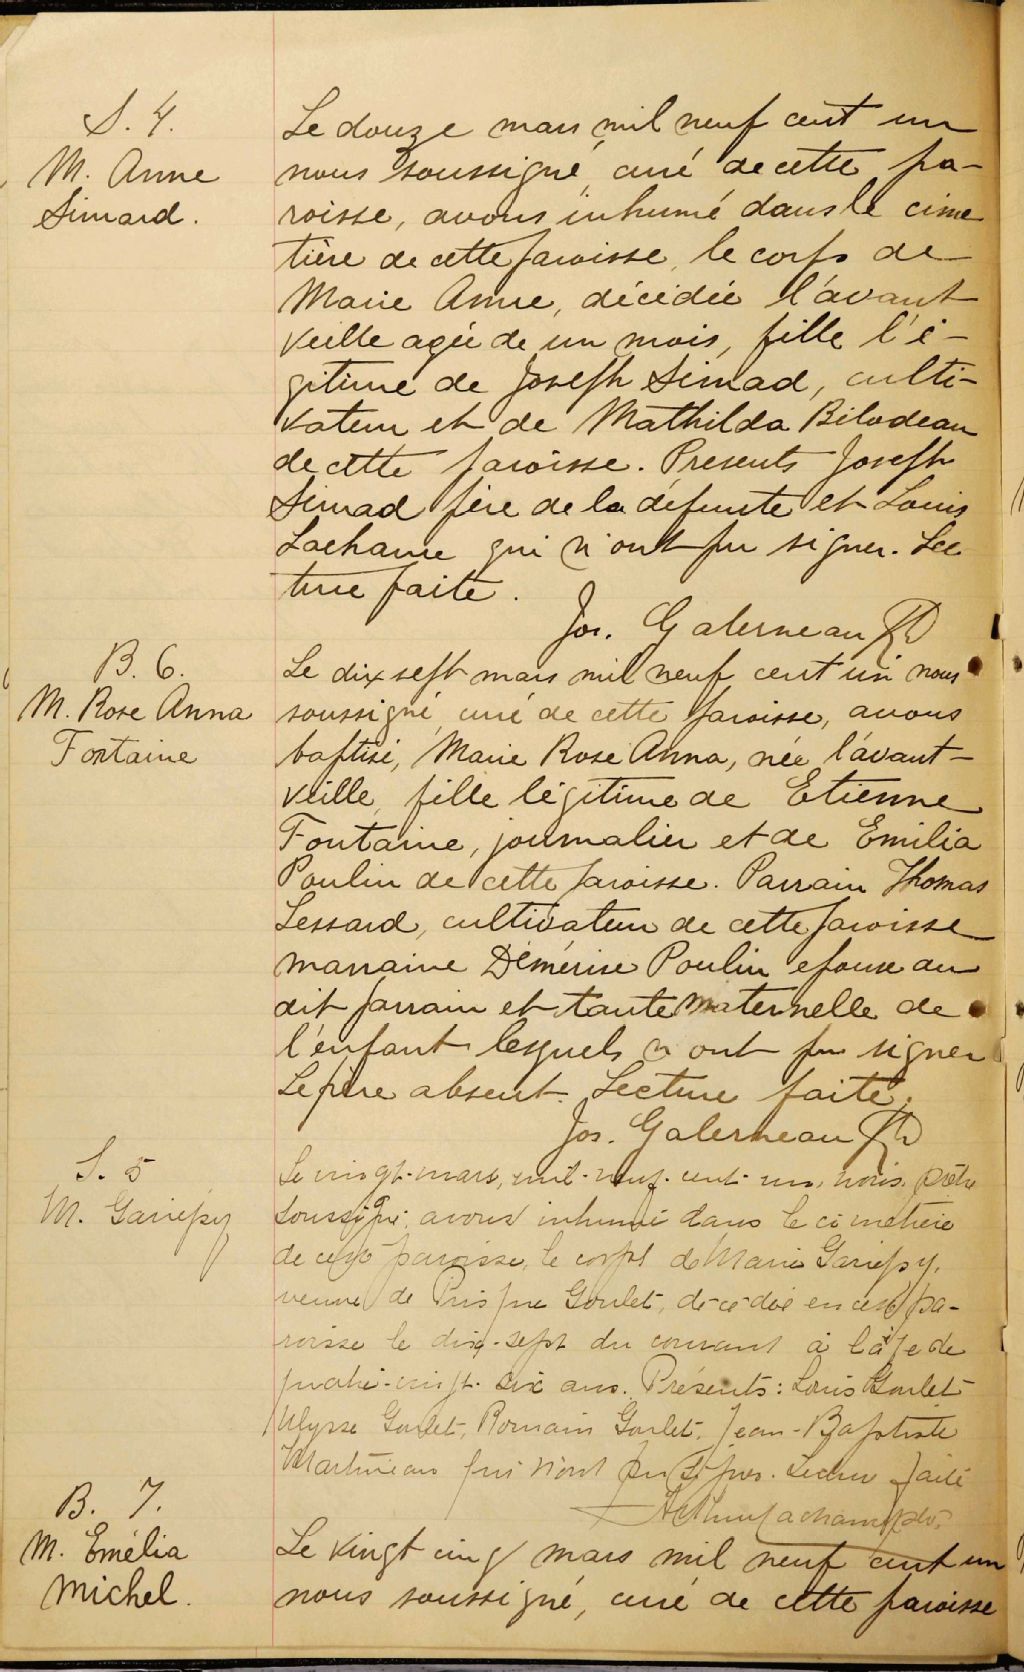 S. 4.
M. Anne
Simard.
Le douze mars mil neuf cent un
nous soussigné, curé de cette pa-
roisse, avons inhumé dans le cime
tière de cette paroisse, le corps de
Marie Anne, décédée l'avant
veille agée de un mois, fille l'é-
gitime de Joseph Simad, culti-
vateur et de Mathilda Bilodeau
de cette paroisse. Presents Joseph
Simad père de la défunte et Louis
Lachance qui n'ont pu signer. Lec
ture faite.
Jos. Galerneau Ptr
B. 6.
M. Rose Anna
Fontaine
Le dix sept mars mil neuf cent un nous
soussigné, curé de cette paroisse, avons
baptisé, Marie Rose Anna, née l'avant-
veille, fille légitime de Etienne
Fontaine, journalier et de Emilia
Poulin de cette paroisse. Parrain Thomas
Lessard, cultivateur de cette paroisse
marraine Démérise Poulin epouse du
dit parrain et tante maternelle de
l'enfant lesquels n'ont pu signer
Le père absent. Lecture faite.
Jos. Galerneau Ptr
S. 5
M. Gariepy
Le vingt-mars, mil-neuf-cent-un, nous, prêtre
soussigné, avons inhumé dans le cimetière
de cette paroisse, le corps de Marie Gariepy,
veuve de Prisque Goulet, décédée en cette pa-
roisse le dix-sept du courant à l'âge de
quatre-vingt-six ans. Présents: Louis Goulet
Ulysse Goulet, Romain Goulet, Jean-Baptiste
Martineau qui n'ont pu signer. Lecture faite
B. 7.
M. Emélia
Michel.
Le vingt cinq mars mil neuf cent un
nous soussigné, curé de cette paroisse